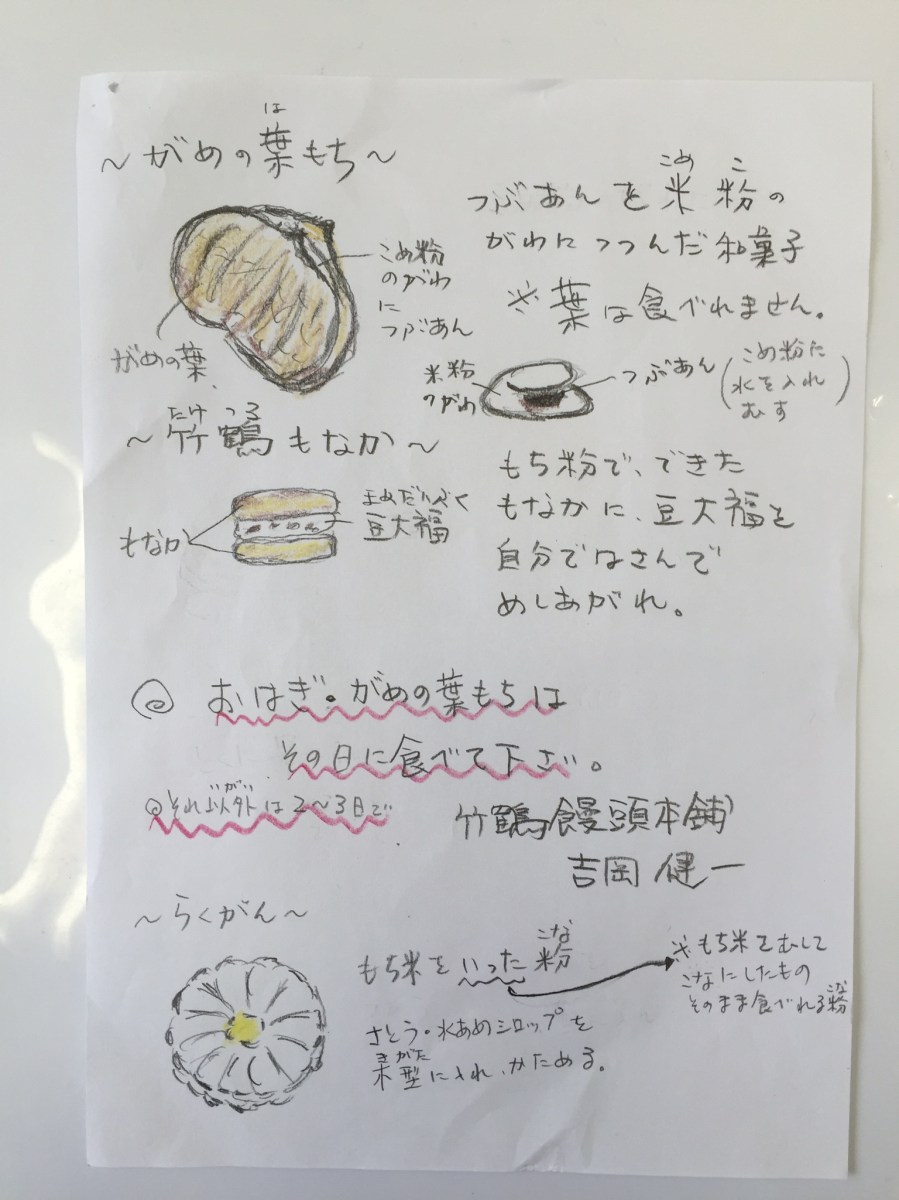 ～がめの葉もち～
は
つぶあんを米粉の
こめ こ
がわにつつんだ和菓子
※葉は食べれません。
こめ粉
のがわ
に
つぶあん
がめの葉
米粉
のがわ
つぶあん
(こめ粉に
水を入れ
むす)
～竹鶴もなか～
たけ つる
もなか
まめだいふく
豆大福
もち粉で、できた
もなかに、豆大福を
自分ではさんで
めしあがれ。
◎ おはぎ。がめの葉もちは
その日に食べて下さい。
◎それ以外は2～3日で
いがい
竹鶴饅頭本舗
吉岡 健一
～らくがん～
もち米をいった粉
こな
※もち米をむして
こなにしたもの
そのまま食べれる粉
こな
さとう・水あめシロップを
木型に入れ、かためる。
きがた